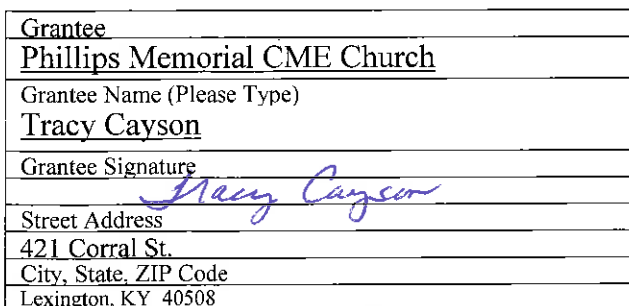 Grantee
Phillips Memorial CME Church
Grantee Name (Please Type)
Tracy Cayson
Grantee Signature
Tracy Cayson
Street Address
421 Corral St.
City, State, ZIP Code
Lexington, KY 40508